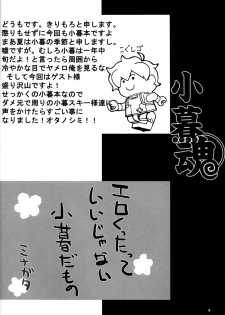 どうもです。きりもろと申します。
懲りもせずに今回も小暮本ですよ
まあ夏は小暮の季節と申しますし。
嘘ですが。むしろ小暮は一年中
旬だよ！と言ったら周囲から
冷やかな目でヤメロ俺を見るな
そして今回はゲスト様が
盛り沢山ですよ！
せっかくの小暮本なので
ダメ元で周りの小暮スキー様達に
声をかけたらすごい事に
なりました！オタノシミ！！
小暮魂
エロくったって
いいじゃない
小暮だもの
ミナガタ
4